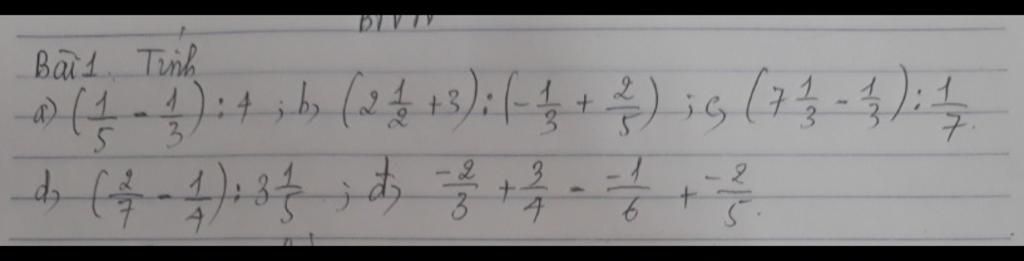 BTVN
Bài 1. Tính
a) (1/5 - 1/3) : 4 ; b) (2 1/2 + 3) : (-1/3 + 2/5) ; c) (7 1/3 - 1/3) : 1/7.
d) (2/7 - 1/4) : 3 1/5 ; đ) -2/3 + 3/4 - -1/6 + -2/5.